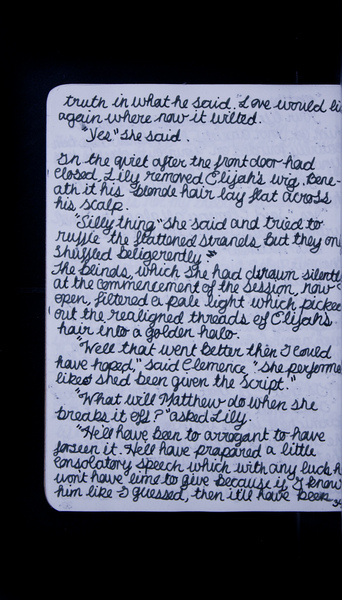 truth in what he said. Love would li
again where now it wilted.
"Yes" she said.
In the quiet after the front door had
closed, Lily removed Elijah's wig. Bene-
ath it his blonde hair lay flat across
his scalp.
"Silly thing" she said and tried to
ruffle the flattened strands, but they on
shuffled beligerently.
The blinds, which she had drawn silentl
at the commencement of the session, now
open, filtered a pale light which picke
out the realigned threads of Elijah's
hair into a golden halo.
"Well that went better then I could
have hoped," said Clemence, "she performe
likes shed been given the script."
"What will Matthew do when she
breaks it off?" asked Lily.
"He'll have been to arrogant to have
forseen it. He'll have prapared a little
consolatory speech which with any luck h
wont have time to give because if I know
him like I guessed, then it'll have been